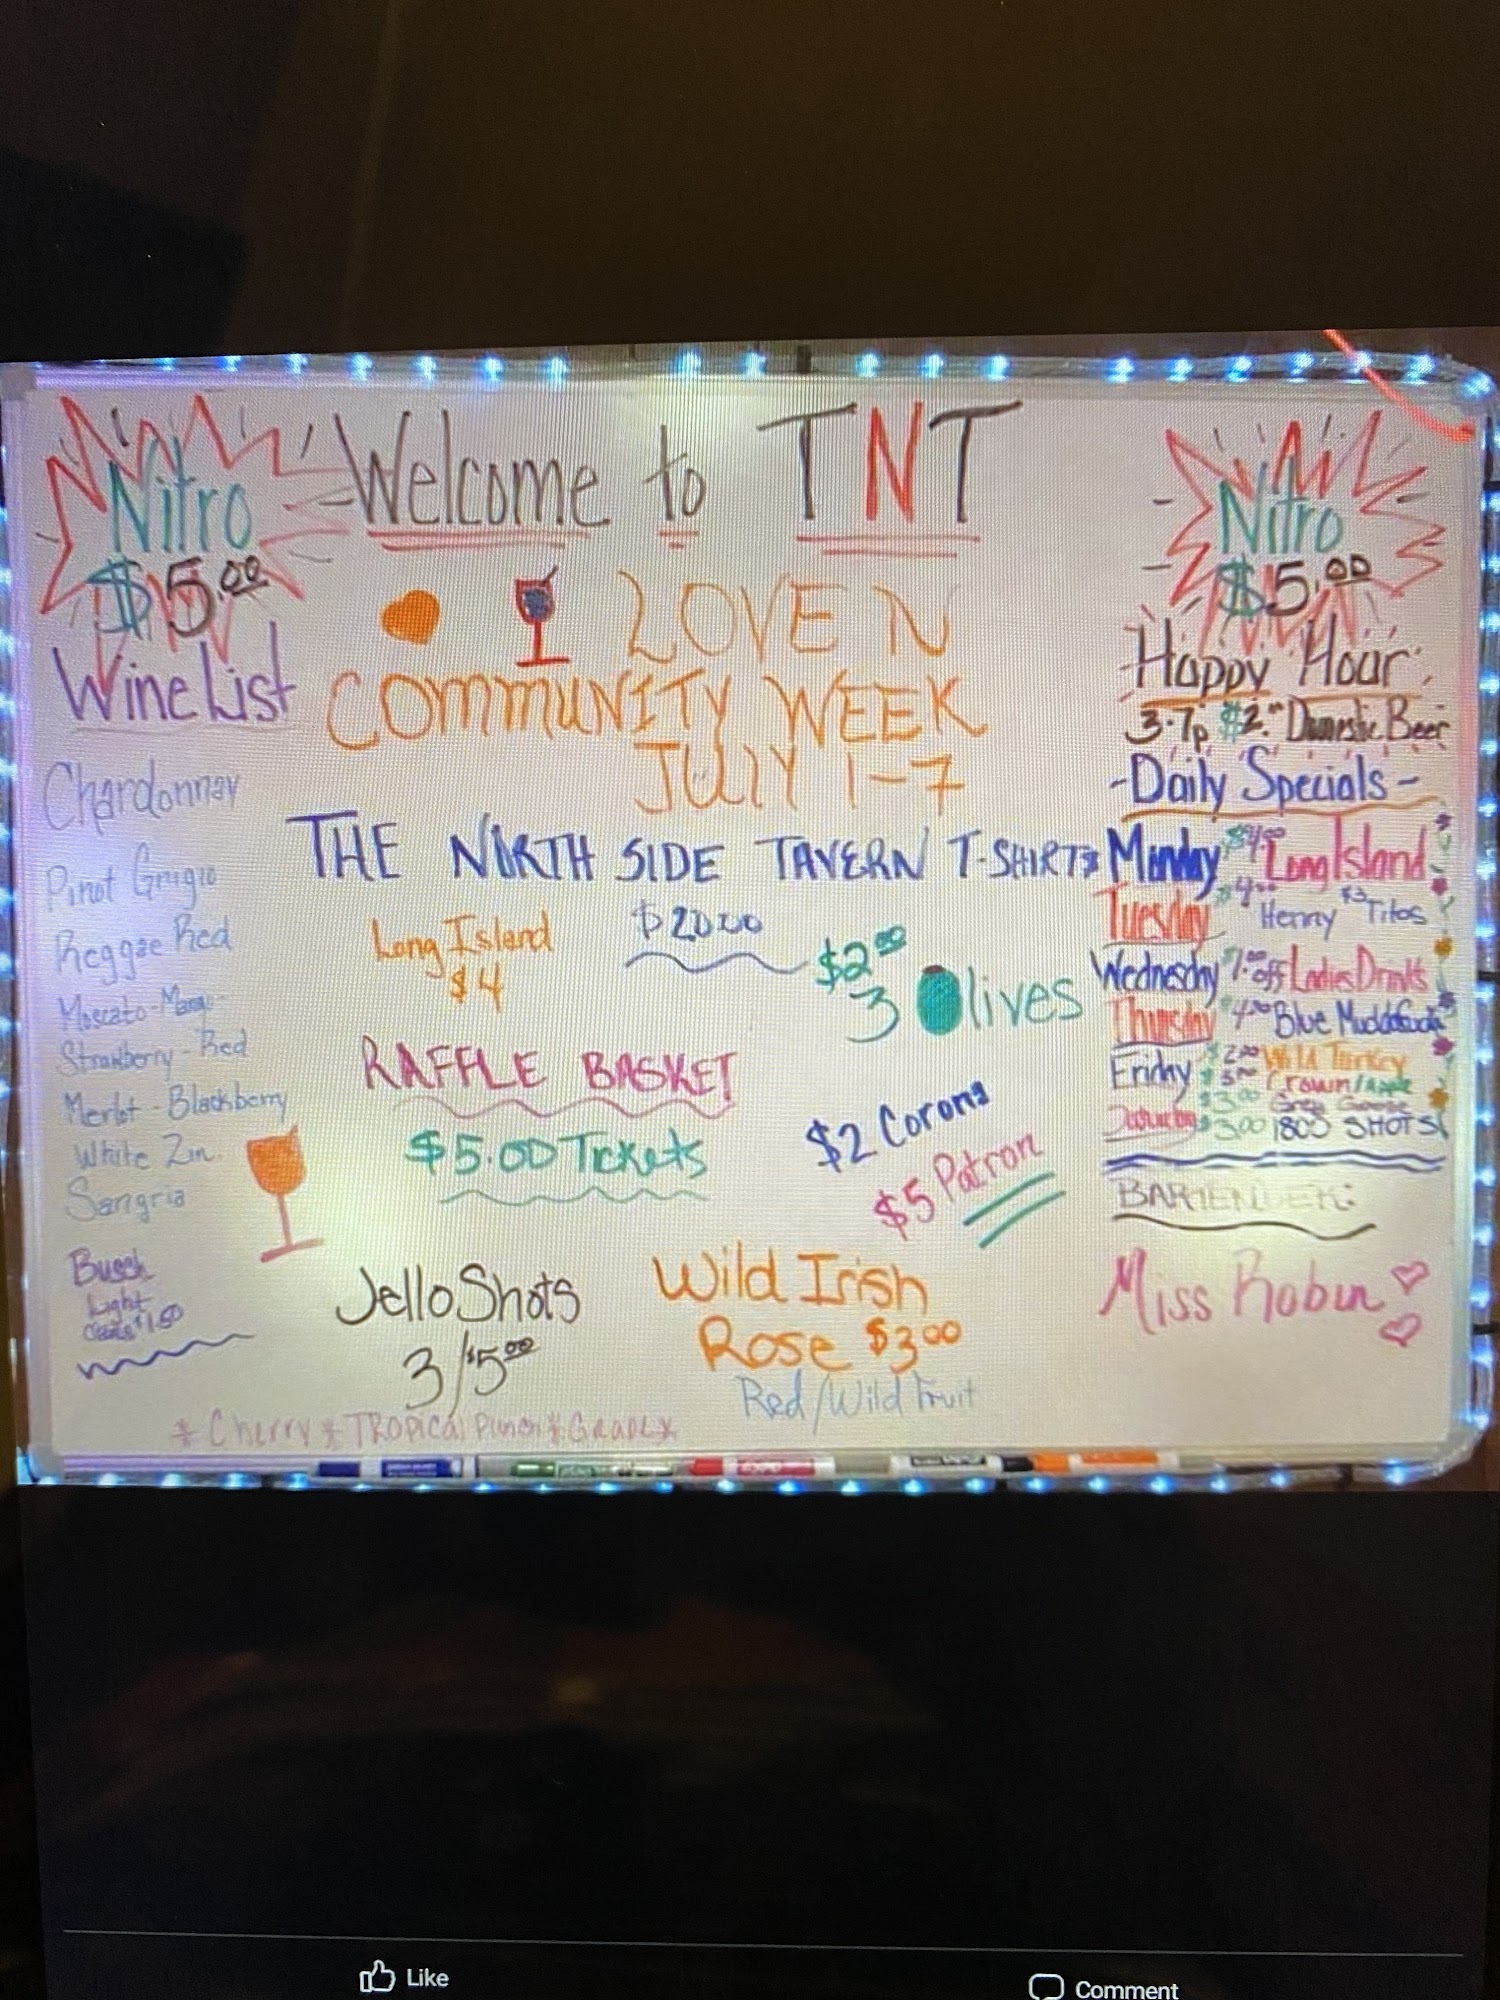 Nitro
$5.00
Welcome to TNT
LOVE N
COMMUNITY WEEK
JULY 1-7
THE NORTH SIDE TAVERN T-SHIRTS
$20.00
Wine List
Chardonnay
Pinot Grigio
Reggae Red
Moscato-Mango-
Strawberry-Red
Merlot-Blackberry
White Zin.
Sangria
Busch
Light
$1.50
Long Island
$4
$2.00
3 Olives
RAFFLE BASKET
$5.00 Tickets
$2 Corona
$5 Patron
Jello Shots
3/$5.00
*Cherry*TROPical Punch*Grape*
Wild Irish
Rose $3.00
Red/Wild Fruit
Nitro
$5.00
Happy Hour:
3-7p $2.00 Domestic Beer
-Daily Specials-
Monday $4.00 Long Island
Tuesday $4.00 Henny $3 Titos
Wednesday 1.00 off Ladies Drinks
Thursday $4.00 Blue
Friday $2.00 Wild Turkey
$5.00 Crown/Apple
$3.00 Grey Goose
Saturday $3.00 1800 SHOTS
BARTENDER:
Miss Robin
Like
Comment